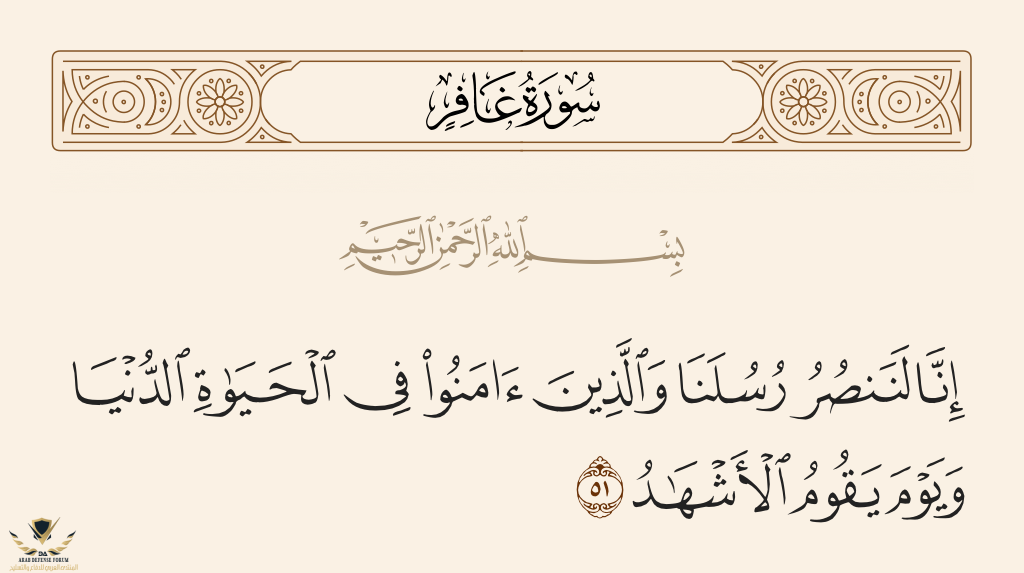 سُورَةُ غَافِرٍ
بِسْمِ ٱللَّهِ ٱلرَّحْمَٰنِ ٱلرَّحِيمِ
إِنَّا لَنَنصُرُ رُسُلَنَا وَٱلَّذِينَ ءَامَنُوا۟ فِى ٱلْحَيَوٰةِ ٱلدُّنْيَا
وَيَوْمَ يَقُومُ ٱلْأَشْهَـٰدُ ٥١
DA
ARAB DEFENSE FORUM
المنتدى العربي للدفاع والتسليح